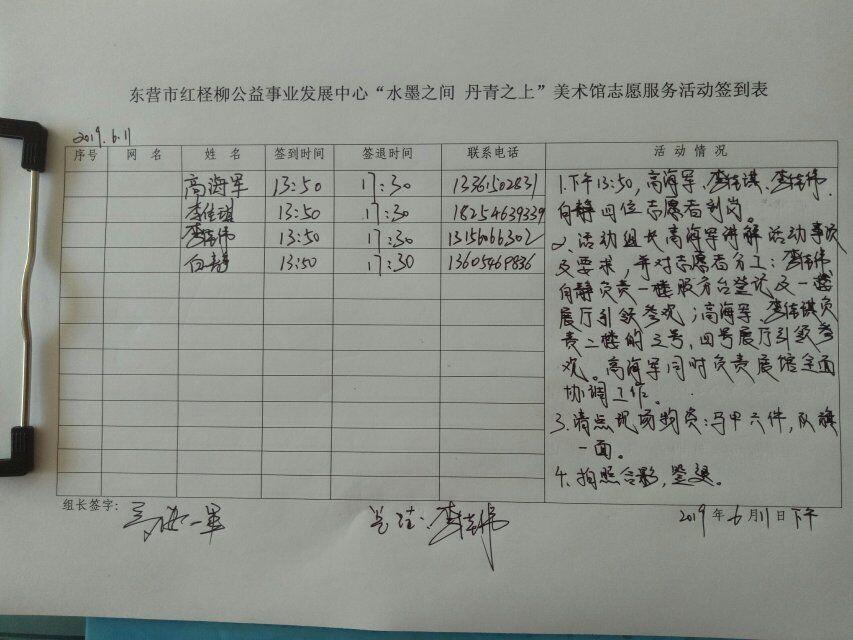 东营市红柽柳公益事业发展中心“水墨之间 丹青之上”美术馆志愿服务活动签到表
2019.6.11
序号 网 名 姓 名 签到时间 签退时间 联系电话 活 动 情 况
高海军 13:50 17:30 13361502831
李佳琪 13:50 17:30 18254639339
李佳伟 13:50 17:30 13156066302
白静 13:50 17:30 13605469836
1.下午13:50,高海军、李佳琪、李佳伟、
白静四位志愿者到岗。
2、活动组长高海军讲解活动事项
及要求,并对志愿者分工:李佳伟、
白静负责一楼服务台登记及一楼
展厅引领参观;高海军、李佳琪负
责二楼的三号,四号展厅引领参
观。高海军同时负责展馆全面
协调工作。
3.清点现场物资:马甲六件,队旗
一面。
4.拍照合影,签退。
组长签字: 高海军 李佳伟 2019年6月11日下午